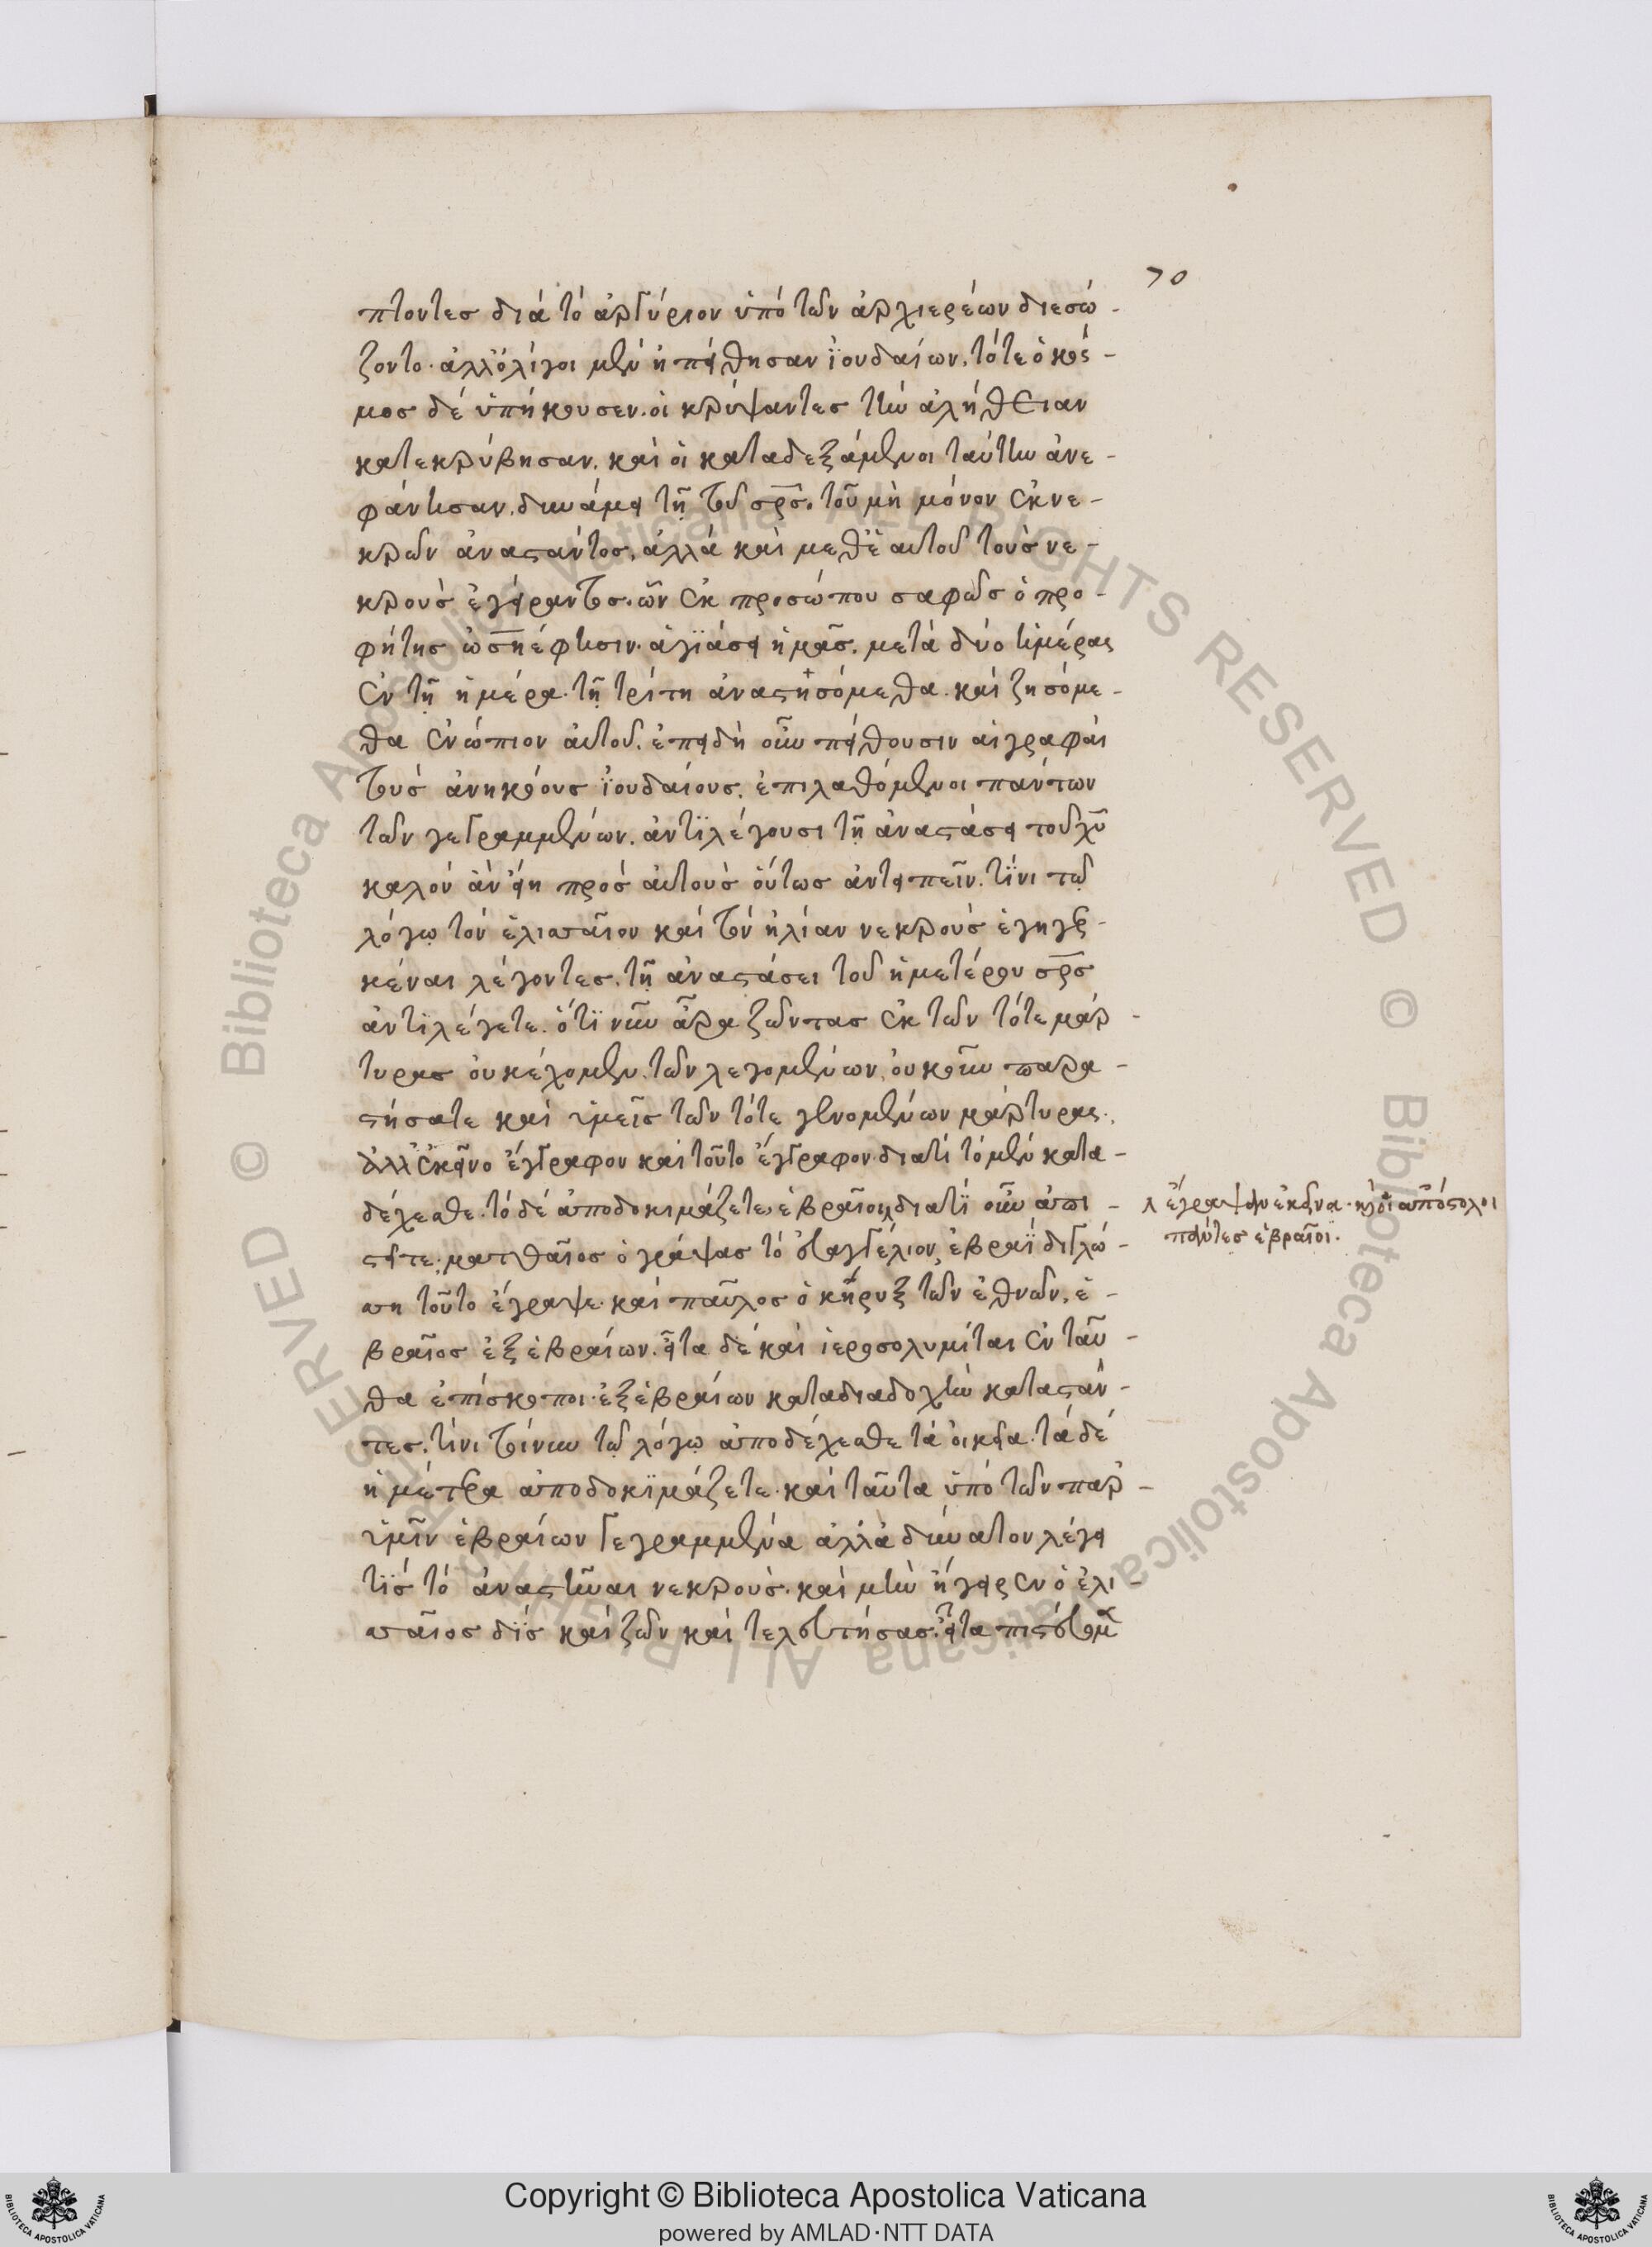 70
πτοντες διά τό ἀργύριον ὑπό τῶν ἀρχιερέων διεσώ-
ζοντο. ἀλλ' ὀλίγοι μέν ἠπείθησαν ἰουδαίων. τότε ὁ κόσ-
μος δέ ὑπήκουσεν. οἱ κρύψαντες τὴν ἀλήθειαν
κατεκρύβησαν. καί οἱ καταδεξάμενοι ταύτην ἀνε-
φάνησαν. δυνάμει τῇ τοῦ σρς. τοῦ μὴ μόνον ἐκ νε-
κρῶν ἀναστάντος, ἀλλά καὶ μεθ' ἑαυτοῦ τούς νε-
κρούς ἐγείραντος. ὧν ἐκ προσώπου σαφῶς ὁ προ-
φήτης ὠσηέ φησιν. ὑγϊάσει ἡμᾶς. μετά δύο ἡμέρας
ἐν τῇ ἡμέρα τῇ τρίτη ἀναστησόμεθα. καί ζησόμε-
θα ἐνώπιον αὐτοῦ. ἐπειδὴ οὖν πείθουσιν αἱ γραφάι
τούς ἀνηκόους ἰουδαίους. ἐπιλαθόμενοι πάντων
τῶν γεγραμμένων. ἀντϊλέγουσι τῇ ἀναστάσει τοῦ χυ
καλόν ἂν εἴη πρός αὐτούς οὕτως ἀντειπεῖν. τίνι τῷ
λόγῳ τόν ἐλισσαῖον καί τόν ἠλίαν νεκρούς ἐγηγερ-
κέναι λέγοντες. τῇ ἀναστάσει τοῦ ἡμετέρου σρς
ἀντϊλέγετε. ὅτϊ νῦν ἆρα ζῶντας ἐκ τῶν τότε μάρ-
τυρας οὐκ έχομεν. τῶν λεγομένων. οὐκοῦν παρα-
στήσατε καί ὑμεῖς τῶν τότε γενομένων μάρτυρας.
ἀλλ' ἐκεῖνο ἔγγραφον καί τοῦτο ἔγγραφον διατί τό μέν κατα-
δέχεσθε. τό δέ ἀποδοκιμάζετε. ἑβραῖοι διατί οὖν ἀπι-
λ ἔγραψαν ἐκεῖνα. καὶ οἱ ἀπόστολοι
πάντες ἑβραῖοι.
στεῖτε; ματθαῖος ὁ γράψας τό εὐαγγέλιον, ἑβραΐδι γλώ-
σση τοῦτο έγραψε. καί παῦλος ὁ κῆρυξ τῶν ἐθνῶν, ἑ-
βραῖος ἐξ ἑβραίων. εἶτα δέ καί ἱεροσολυμίται ἐνταῦ-
θα ἐπίσκοποι. ἐξ ἑβραίων καταδιαδοχὴν καταστάν-
τες. τίνι τοίνυν τῷ λόγῳ ἀποδέχεσθε τά οἰκεῖα. τά δέ
ἡμέτερα ἀποδοκϊμάζετε. καί ταῦτα ὑπό τῶν παρ'
ὑμῖν ἑβραίων γεγραμμένα ἀλλά δύνατον λέγει
τίς τό ἀναστῆναι νεκρούς. καί μὴν ἤγειρεν ὁ ἐλι-
σσαῖος δίς καί ζῶν καί τελευτήσας. εἶτα πιστεύομ
Copyright © Biblioteca Apostolica Vaticana
powered by AMLAD·NTT DATA